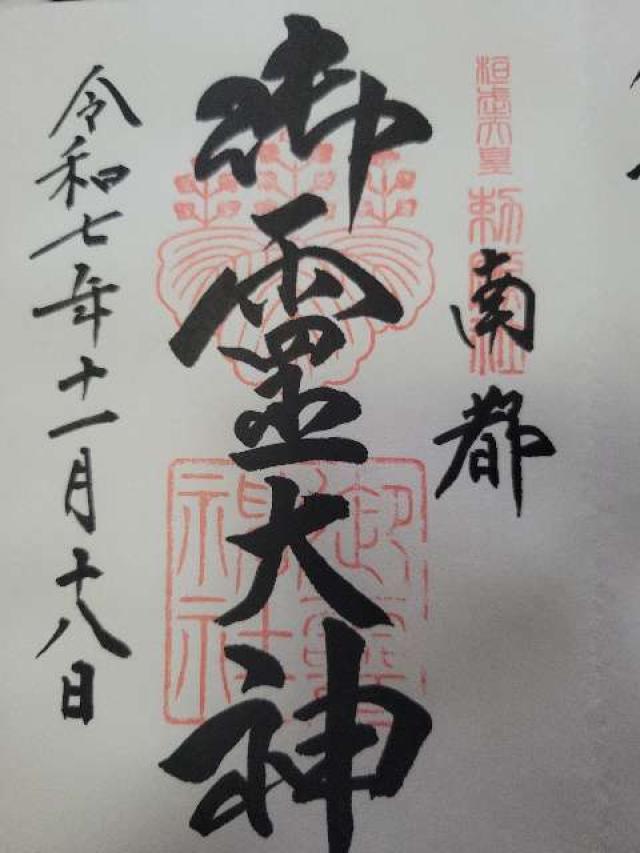 桓武天皇勅願社
南都
御霊大神
御霊神社
令和七年十一月十八日